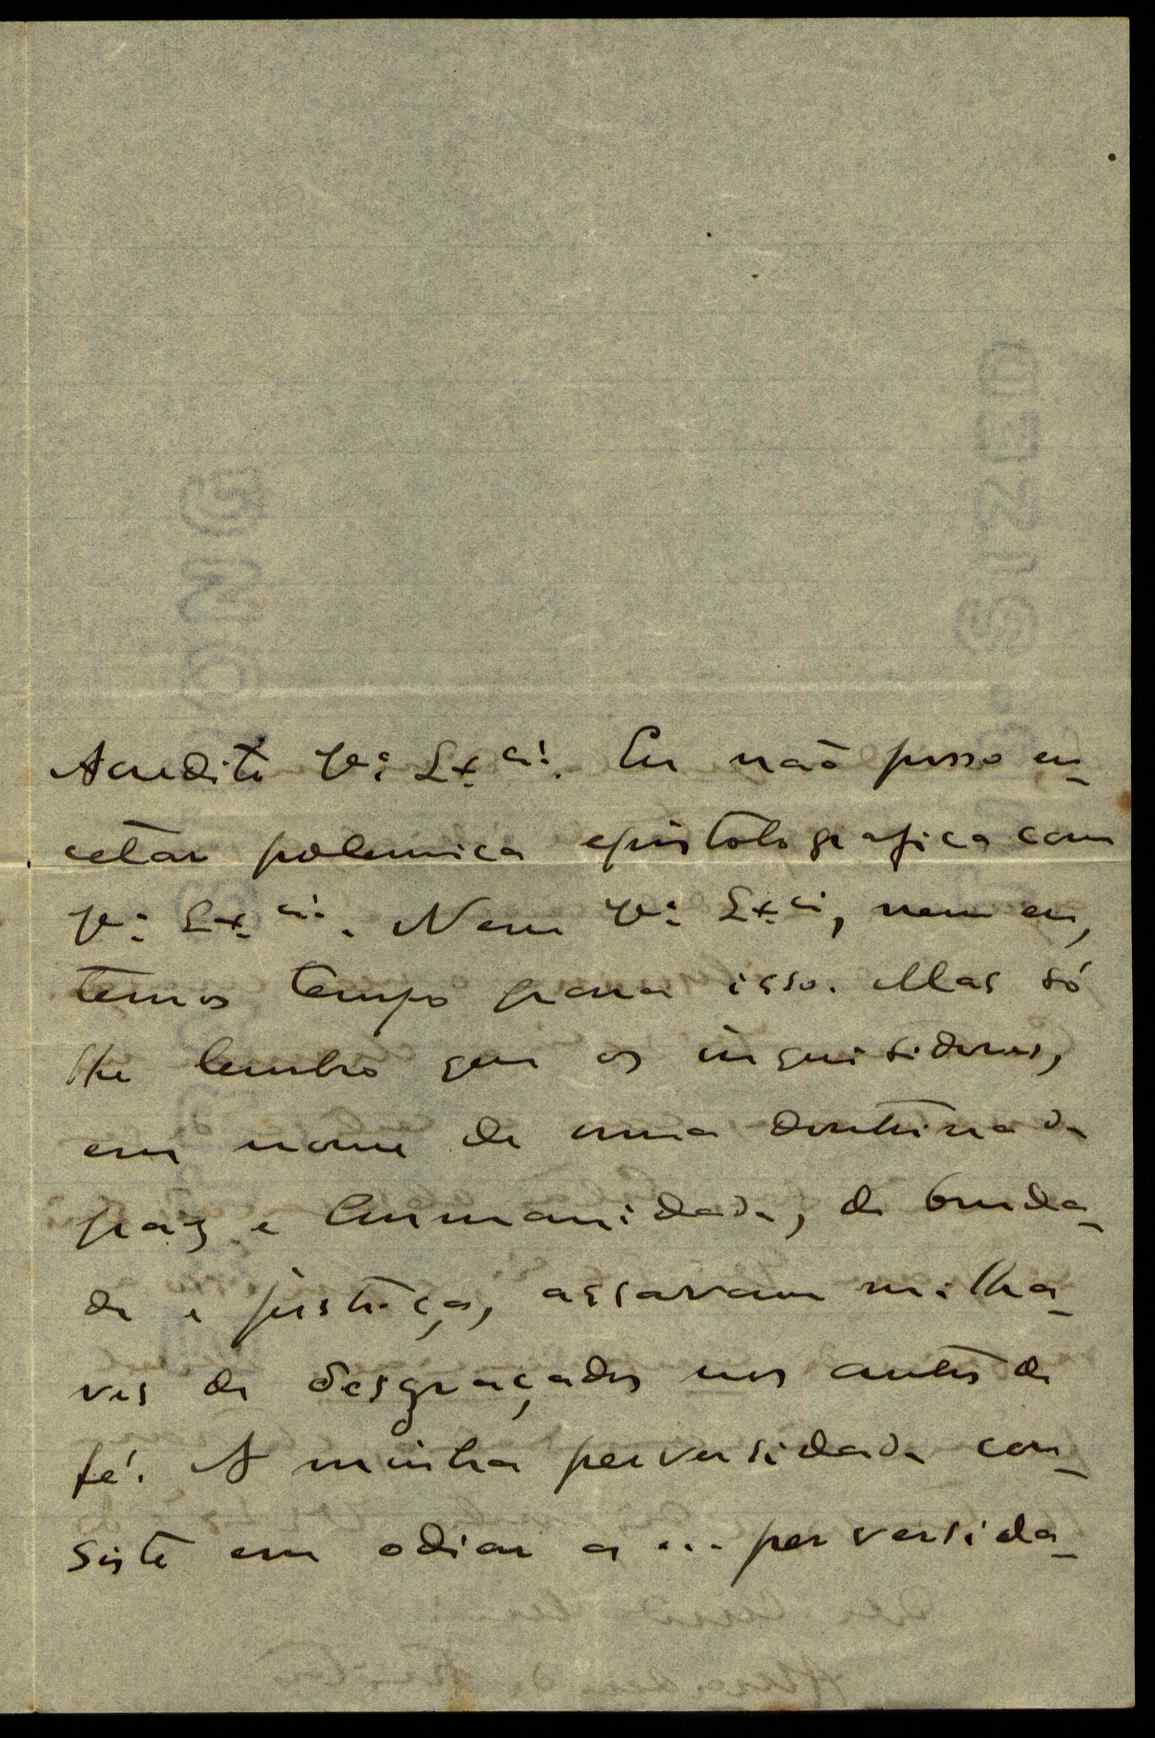 Acredite V.ª Ex.cia. Eu não posso en-
cetar polemica epistolografica com
V.ª Ex.cia. Nem V.ª Ex.cia, nem eu,
temos tempo para isso. Mas só
lhe lembro que os inquisidores,
em nome de uma doutrina de
paz e humanidade, de bonda-
de e justiça, assavam milha-
res de desgraçados nos autos de
fé. A minha perversidade con-
siste em odiar a... perversida-